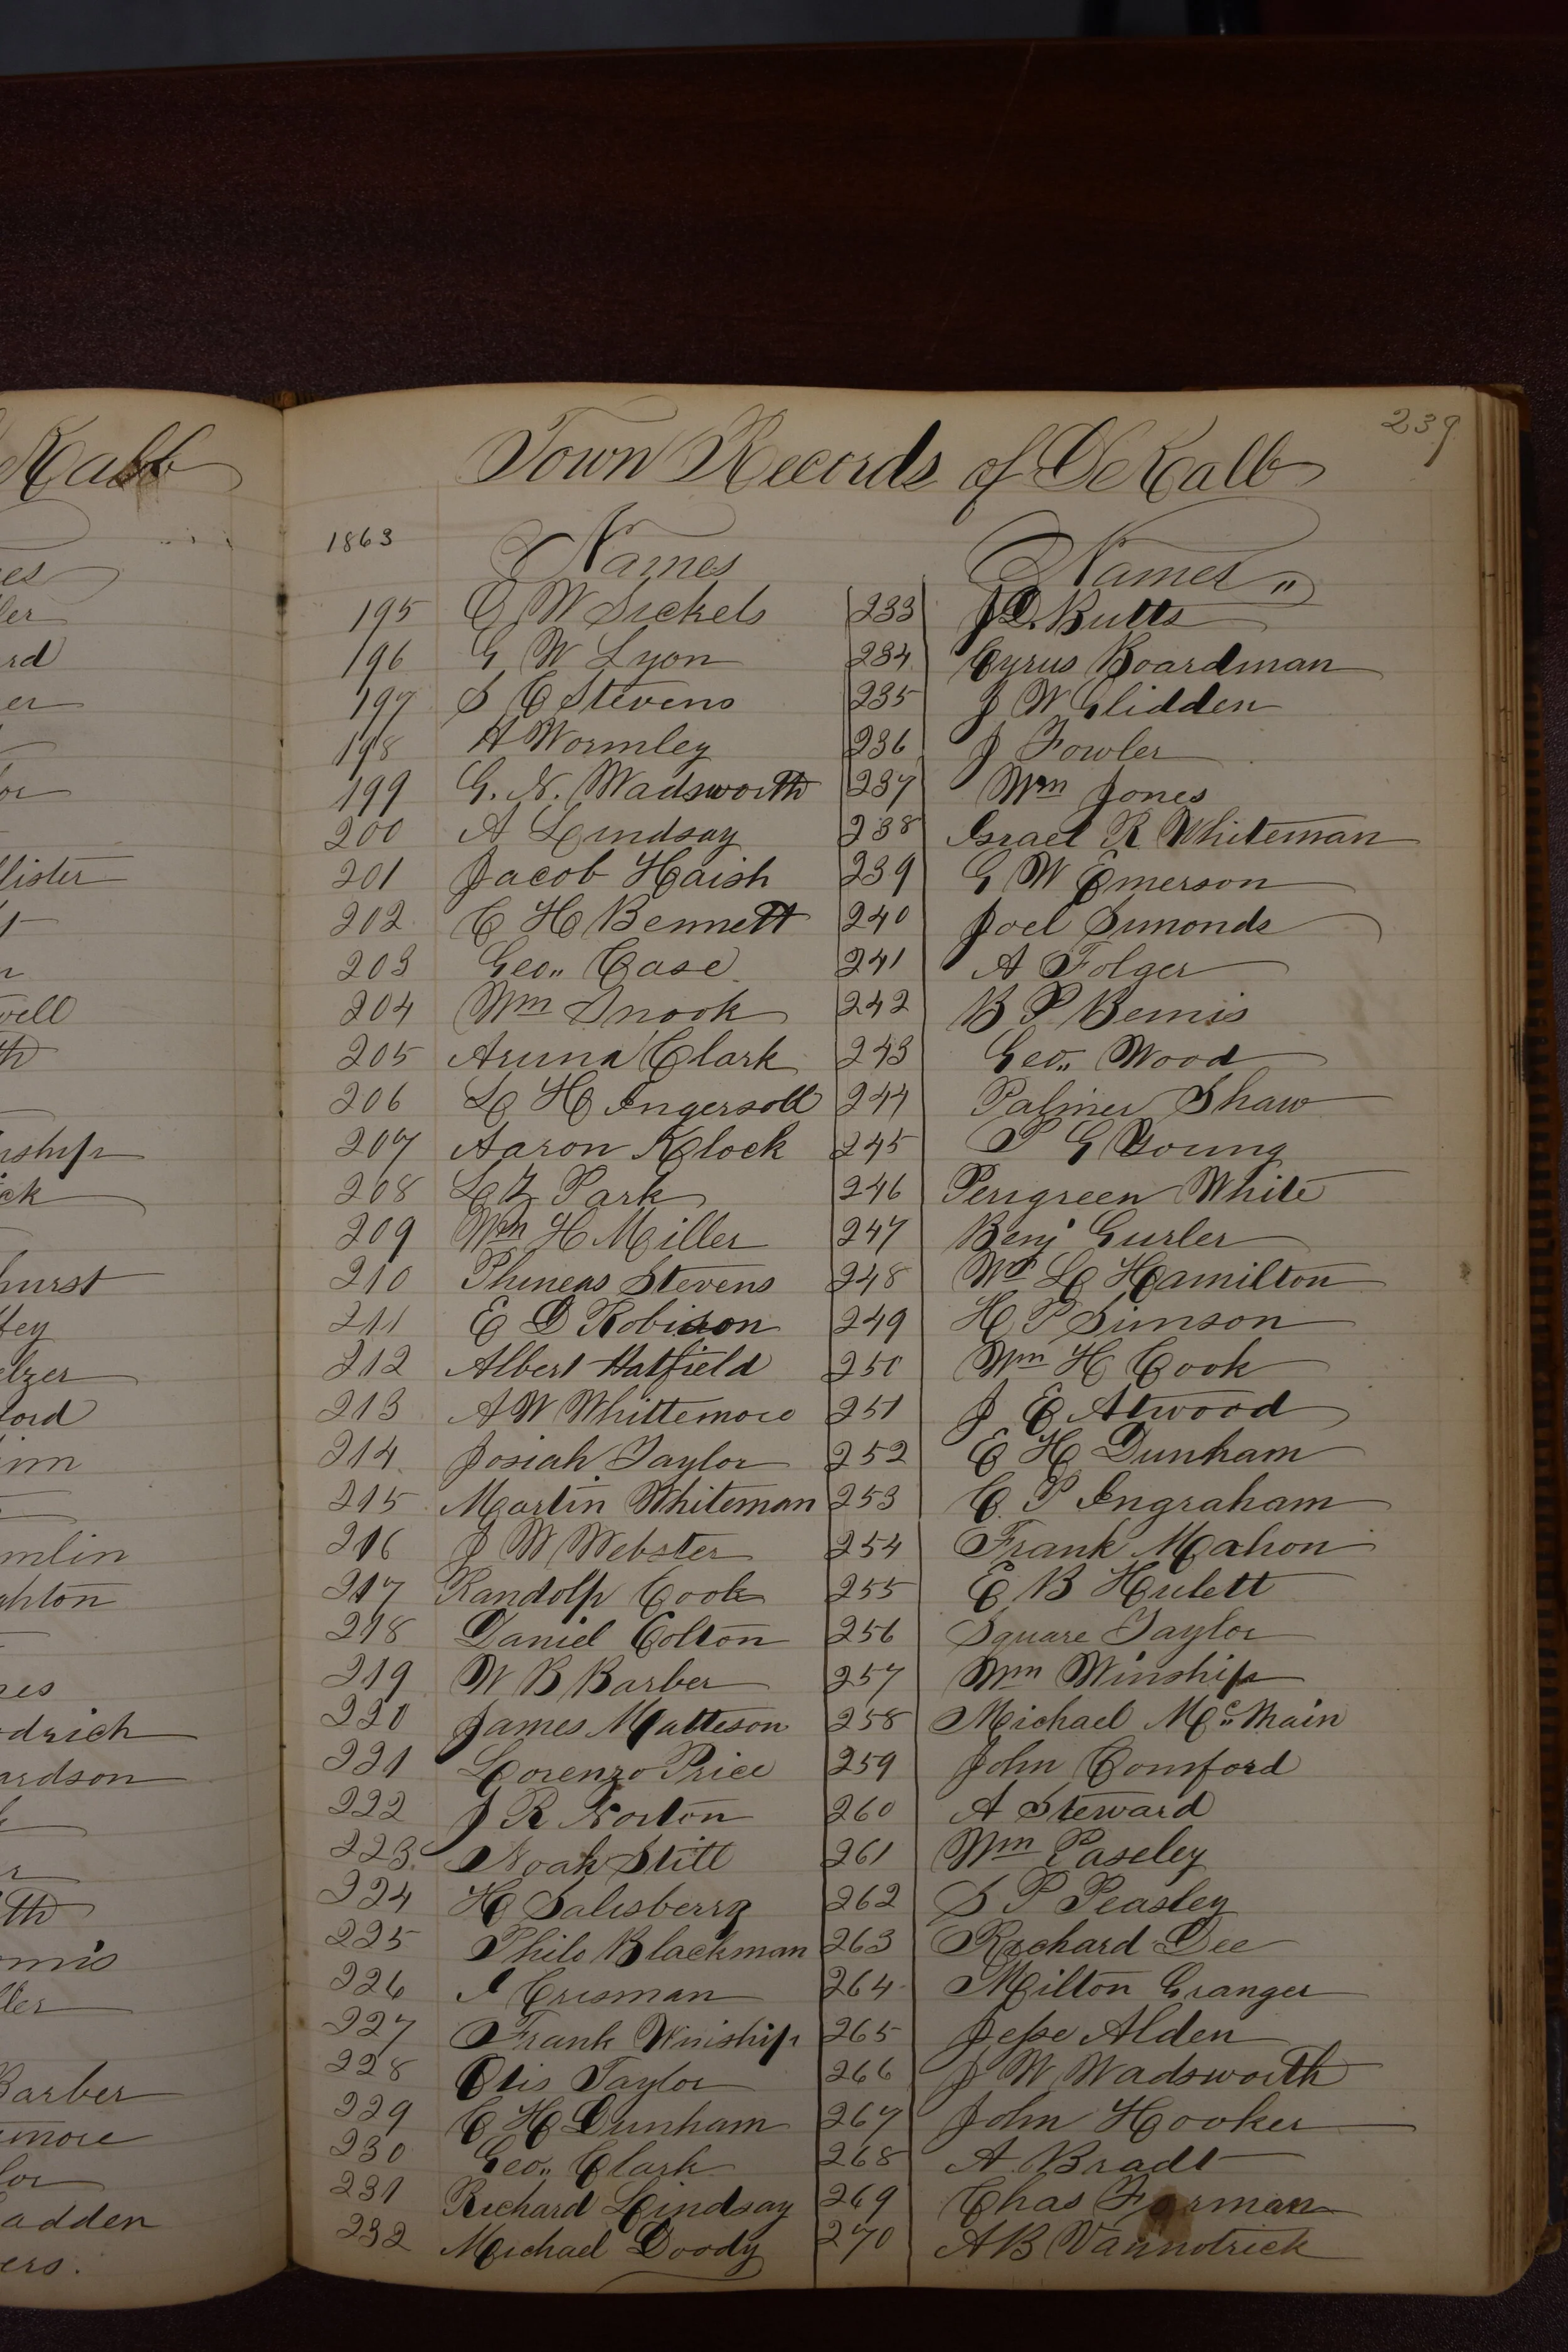 Kalb
239
Town Records of DeKalb
1863
Names Names "
195 E W Sickels 233 J D. Butts
196 G W Lyon 234 Cyrus Boardman
197 S E Stevens 235 J W Glidden
198 A Wormley 236 J Fowler
199 G. N. Wadsworth 237 Wm Jones
200 A Lindsay 238 Israel R Whiteman
201 Jacob Haish 239 G W Emerson
202 C H Bennett 240 Joel Simonds
203 Geo,, Case 241 A Folger
204 Wm Snook 242 B P Bemis
205 Aruna Clark 243 Geo,, Wood
206 L H Ingersoll 244 Palmer Shaw
207 Aaron Klock 245 P G Young
208 L Z Park 246 Perigreen White
209 Wm H Miller 247 Benj Gurler
210 Phineas Stevens 248 Wm L Hamilton
211 E D Robison 249 H P Simson
212 Albert Hatfield 250 Wm H Cook
213 A W Whittemore 251 J E Atwood
214 Josiah Taylor 252 E H Dunham
215 Martin Whiteman 253 C. P Ingraham
216 J W Webster 254 Frank Mahon
217 Randolp Cook 255 E B Hulett
218 Daniel Colton 256 Square Taylor
219 W B Barber 257 Wm Winship
220 James Matteson 258 Michael Mc Main
221 Lorenzo Price 259 John Comford
222 J R Norton 260 A Steward
223 Noah Still 261 Wm Paseley
224 H Salisberry 262 S P Peasley
225 Philo Blackman 263 Richard Dee
226 I Crisman 264 Milton Granger
227 Frank Winship 265 Jesse Alden
228 Otis Taylor 266 J W Wadsworth
229 C H Dunham 267 John Hooker
230 Geo,, Clark 268 A Bradt
231 Richard Lindsay 269 Chas Forman
232 Michael Doody 270 A B Vannotrick